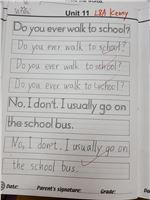 Write
Unit 11
Do you ever walk to school?
Do you ever walk to school?
Do you ever walk to school?
Do you ever walk to school?
No, I don't. I usually go on
the school bus.
No, I don't. I usually go on
the school bus.
Date: Parent's signature: Grade: